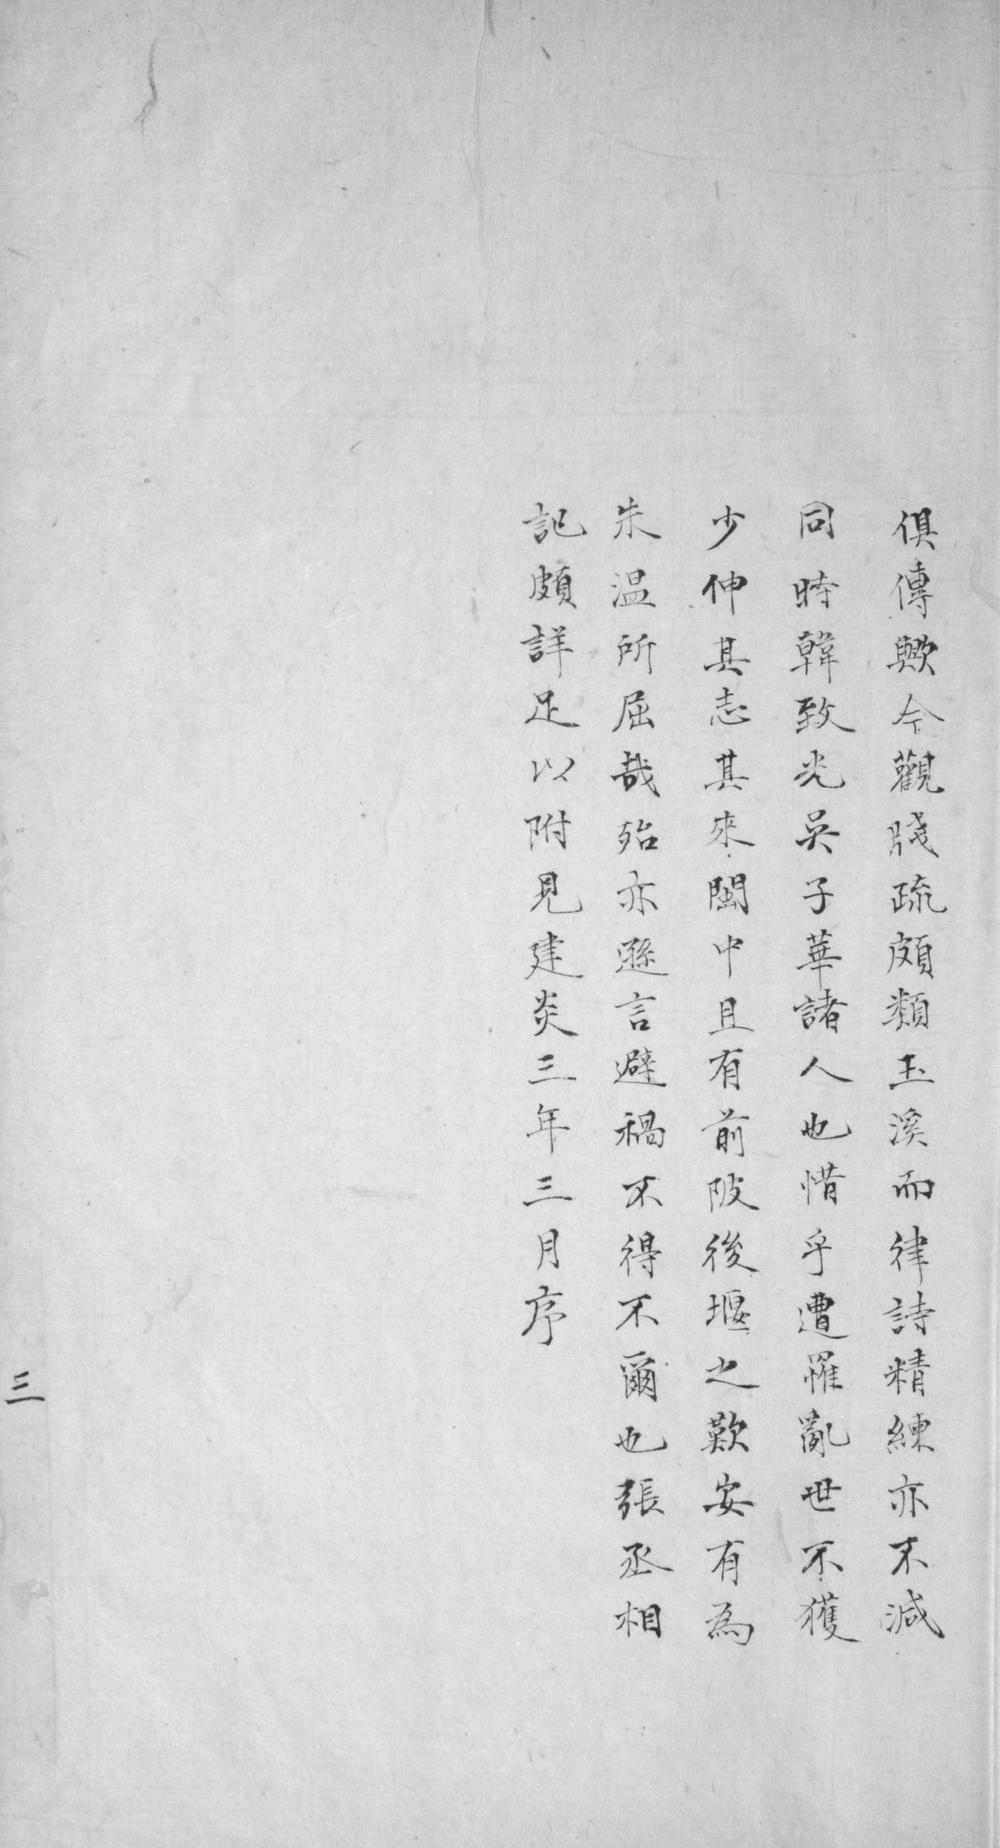 俱傳歟今觀牋疏頗類玉溪而律詩精練亦不減
同時韓致光吳子華諸人也惜乎遭罹亂世不獲
少伸其志其來閩中且有前陂後堰之歎安有為
朱温所屈哉殆亦遜言避禍不得不爾也張丞相
記頗詳足以附見建炎三年三月序
三